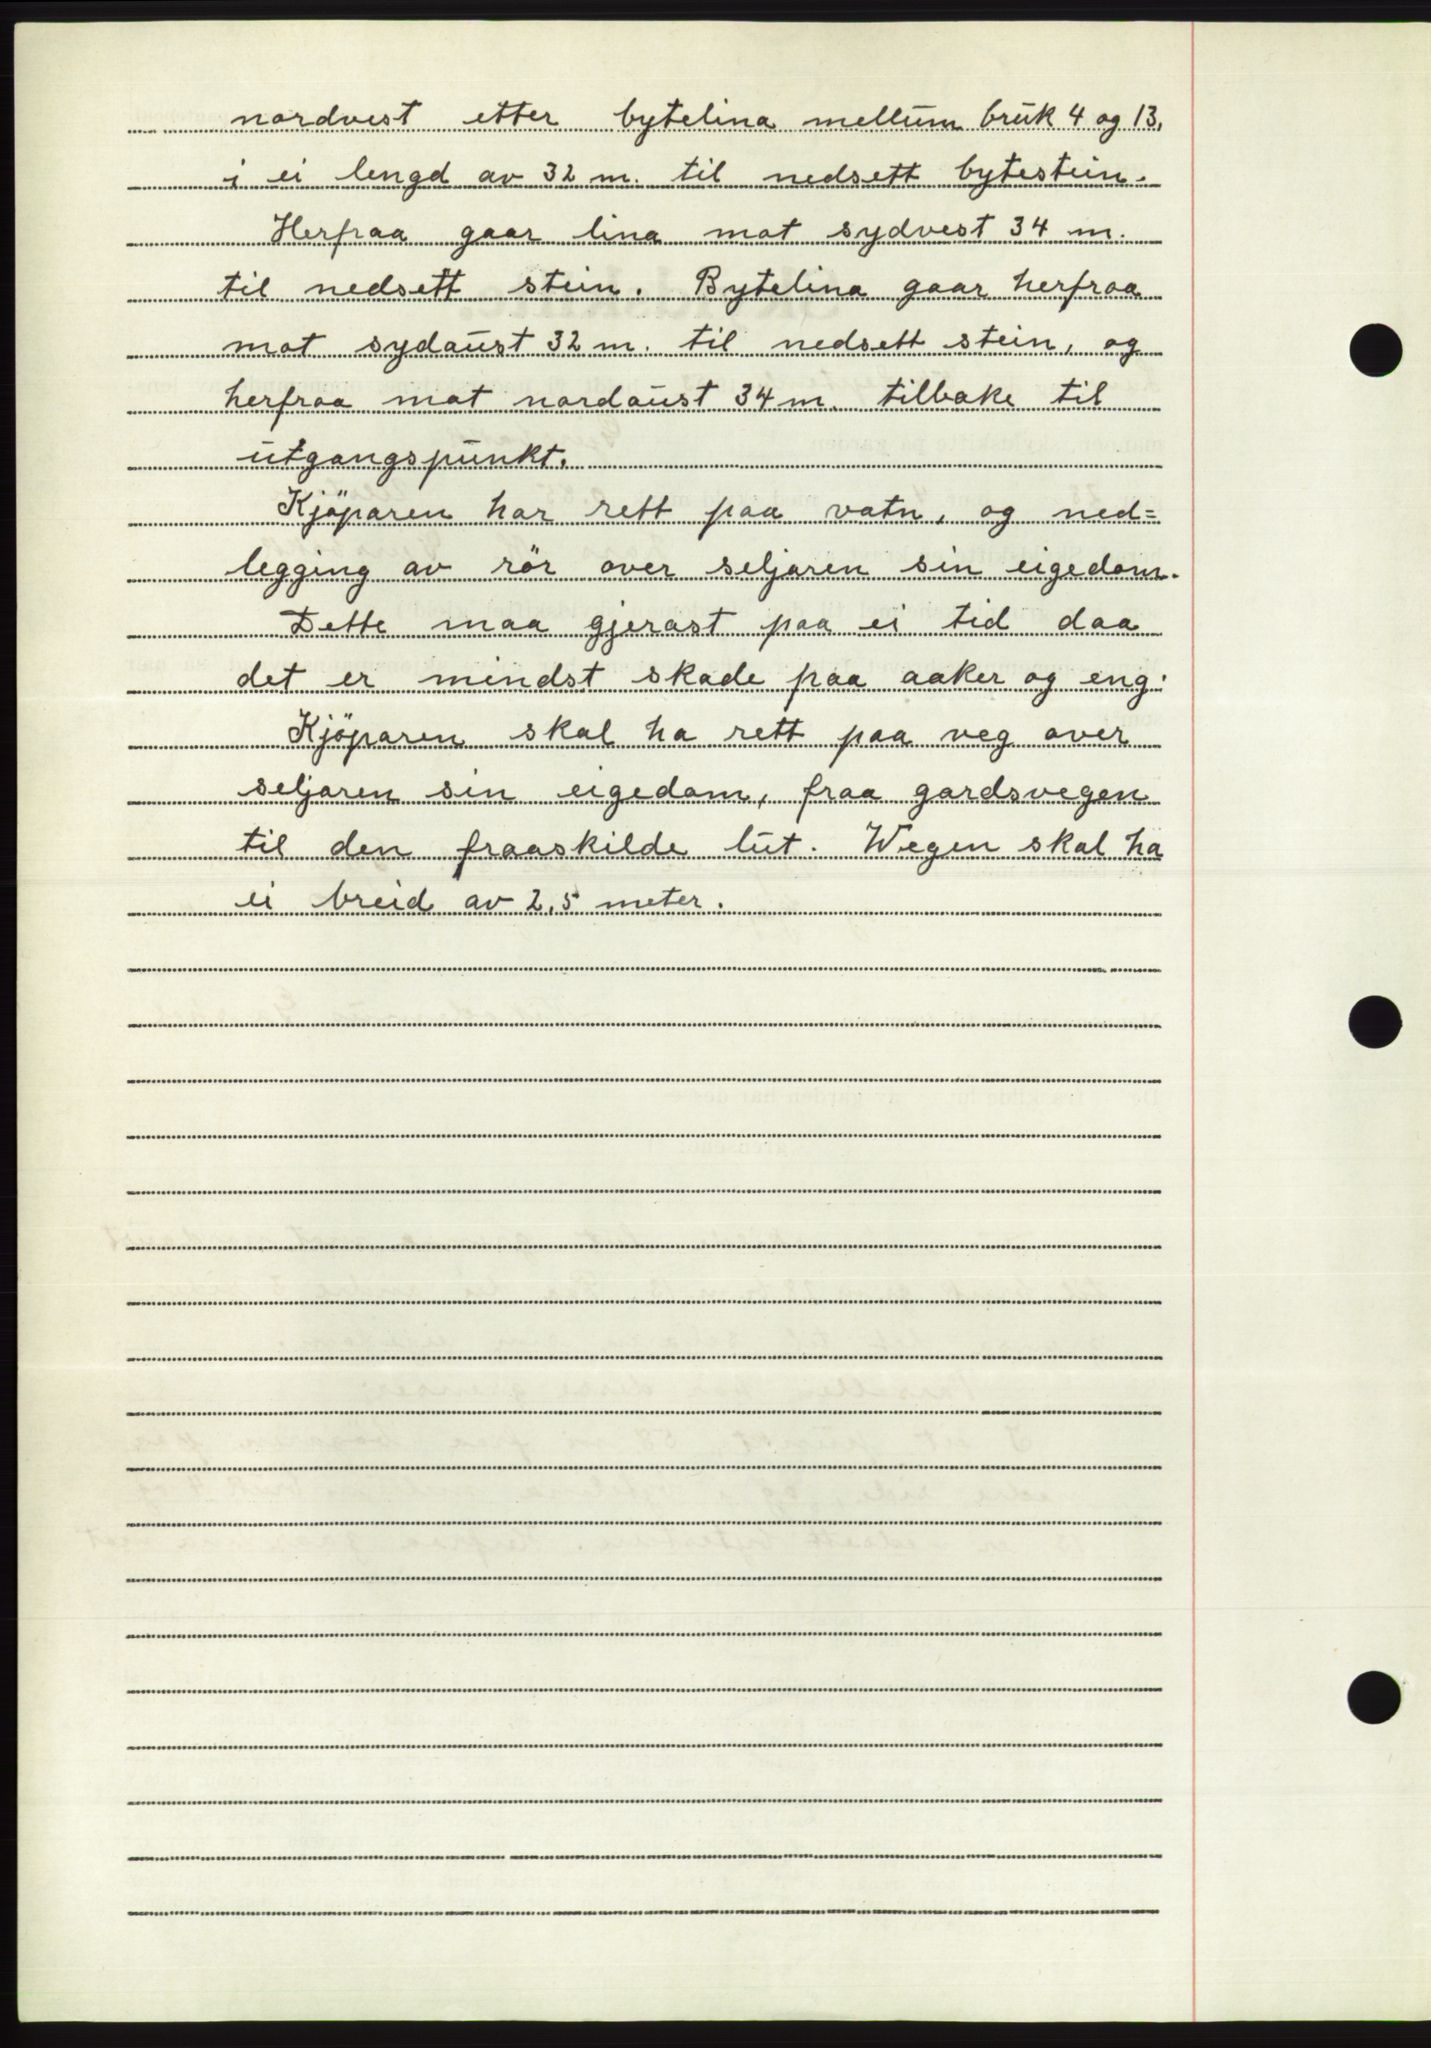 nordvest etter bytelina mellum bruk 4 og 13,
i ei lengd av 32 m. til nedsett bytestein.
Herfraa gaar lina mot sydvest 34 m.
til nedsett stein. Bytelina gaar herfraa
mot sydaust 32 m. til nedsett stein, og
herfraa mot nordaust 34 m. tilbake til
utgangspunkt.
Kjöparen har rett paa vatn, og ned=
legging av rör over seljaren sin eigedom.
Dette maa gjerast paa ei tid daa
det er mindst skade paa aaker og eng.
Kjöparen skal ha rett paa veg over
seljaren sin eigedom, fraa gardsvegen
til den fraaskilde lut. Wegen skal ha
ei breid av 2,5 meter.